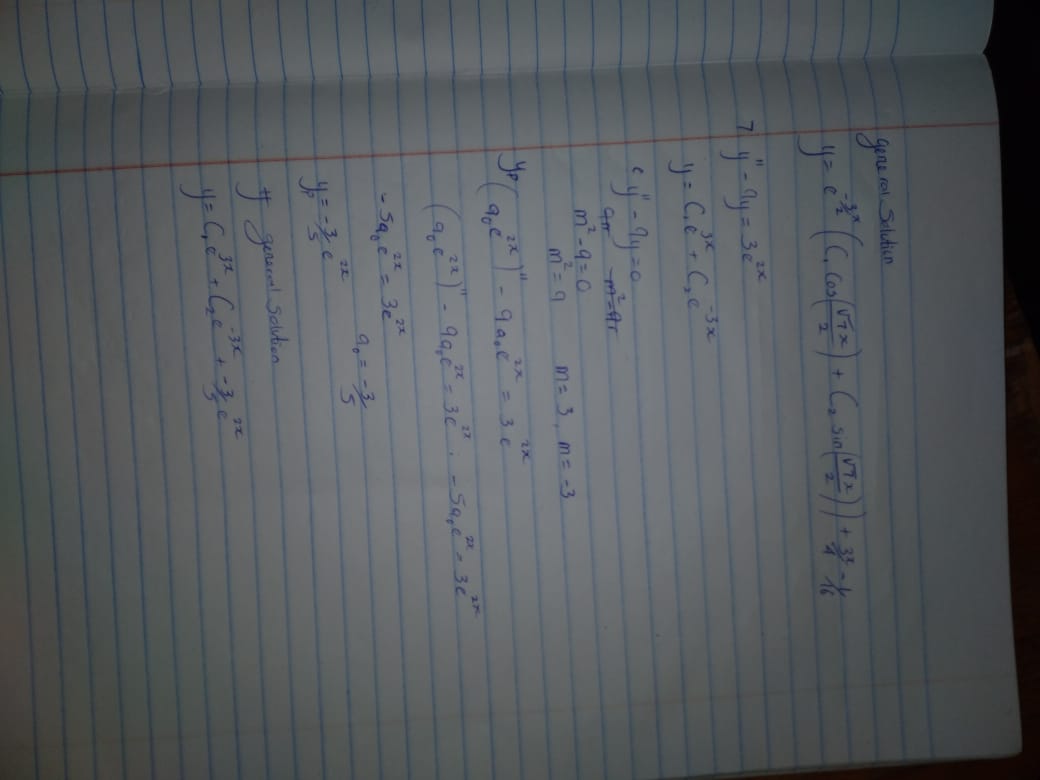 general Solution
y = e^(-3/2 x) (C₁ cos(√7x/2) + C₂ sin(√7x/2)) + 3x/4 - 1/16
7 y'' - 9y = 3e^(2x)
y = C₁e^(3x) + C₂e^(-3x)
y'' - 9y = 0
m² - 9 = 0
m² = 9 m = 3, m = -3
yp (a₀e^(2x))'' - 9a₀e^(2x) = 3e^(2x)
(a₀e^(2x))'' - 9a₀e^(2x) = 3e^(2x) : -5a₀e^(2x) = 3e^(2x)
-5a₀e^(2x) = 3e^(2x)
a₀ = -3/5
yp = -3/5 e^(2x)
# general Solution
y = C₁e^(3x) + C₂e^(-3x) + -3/5 e^(2x)